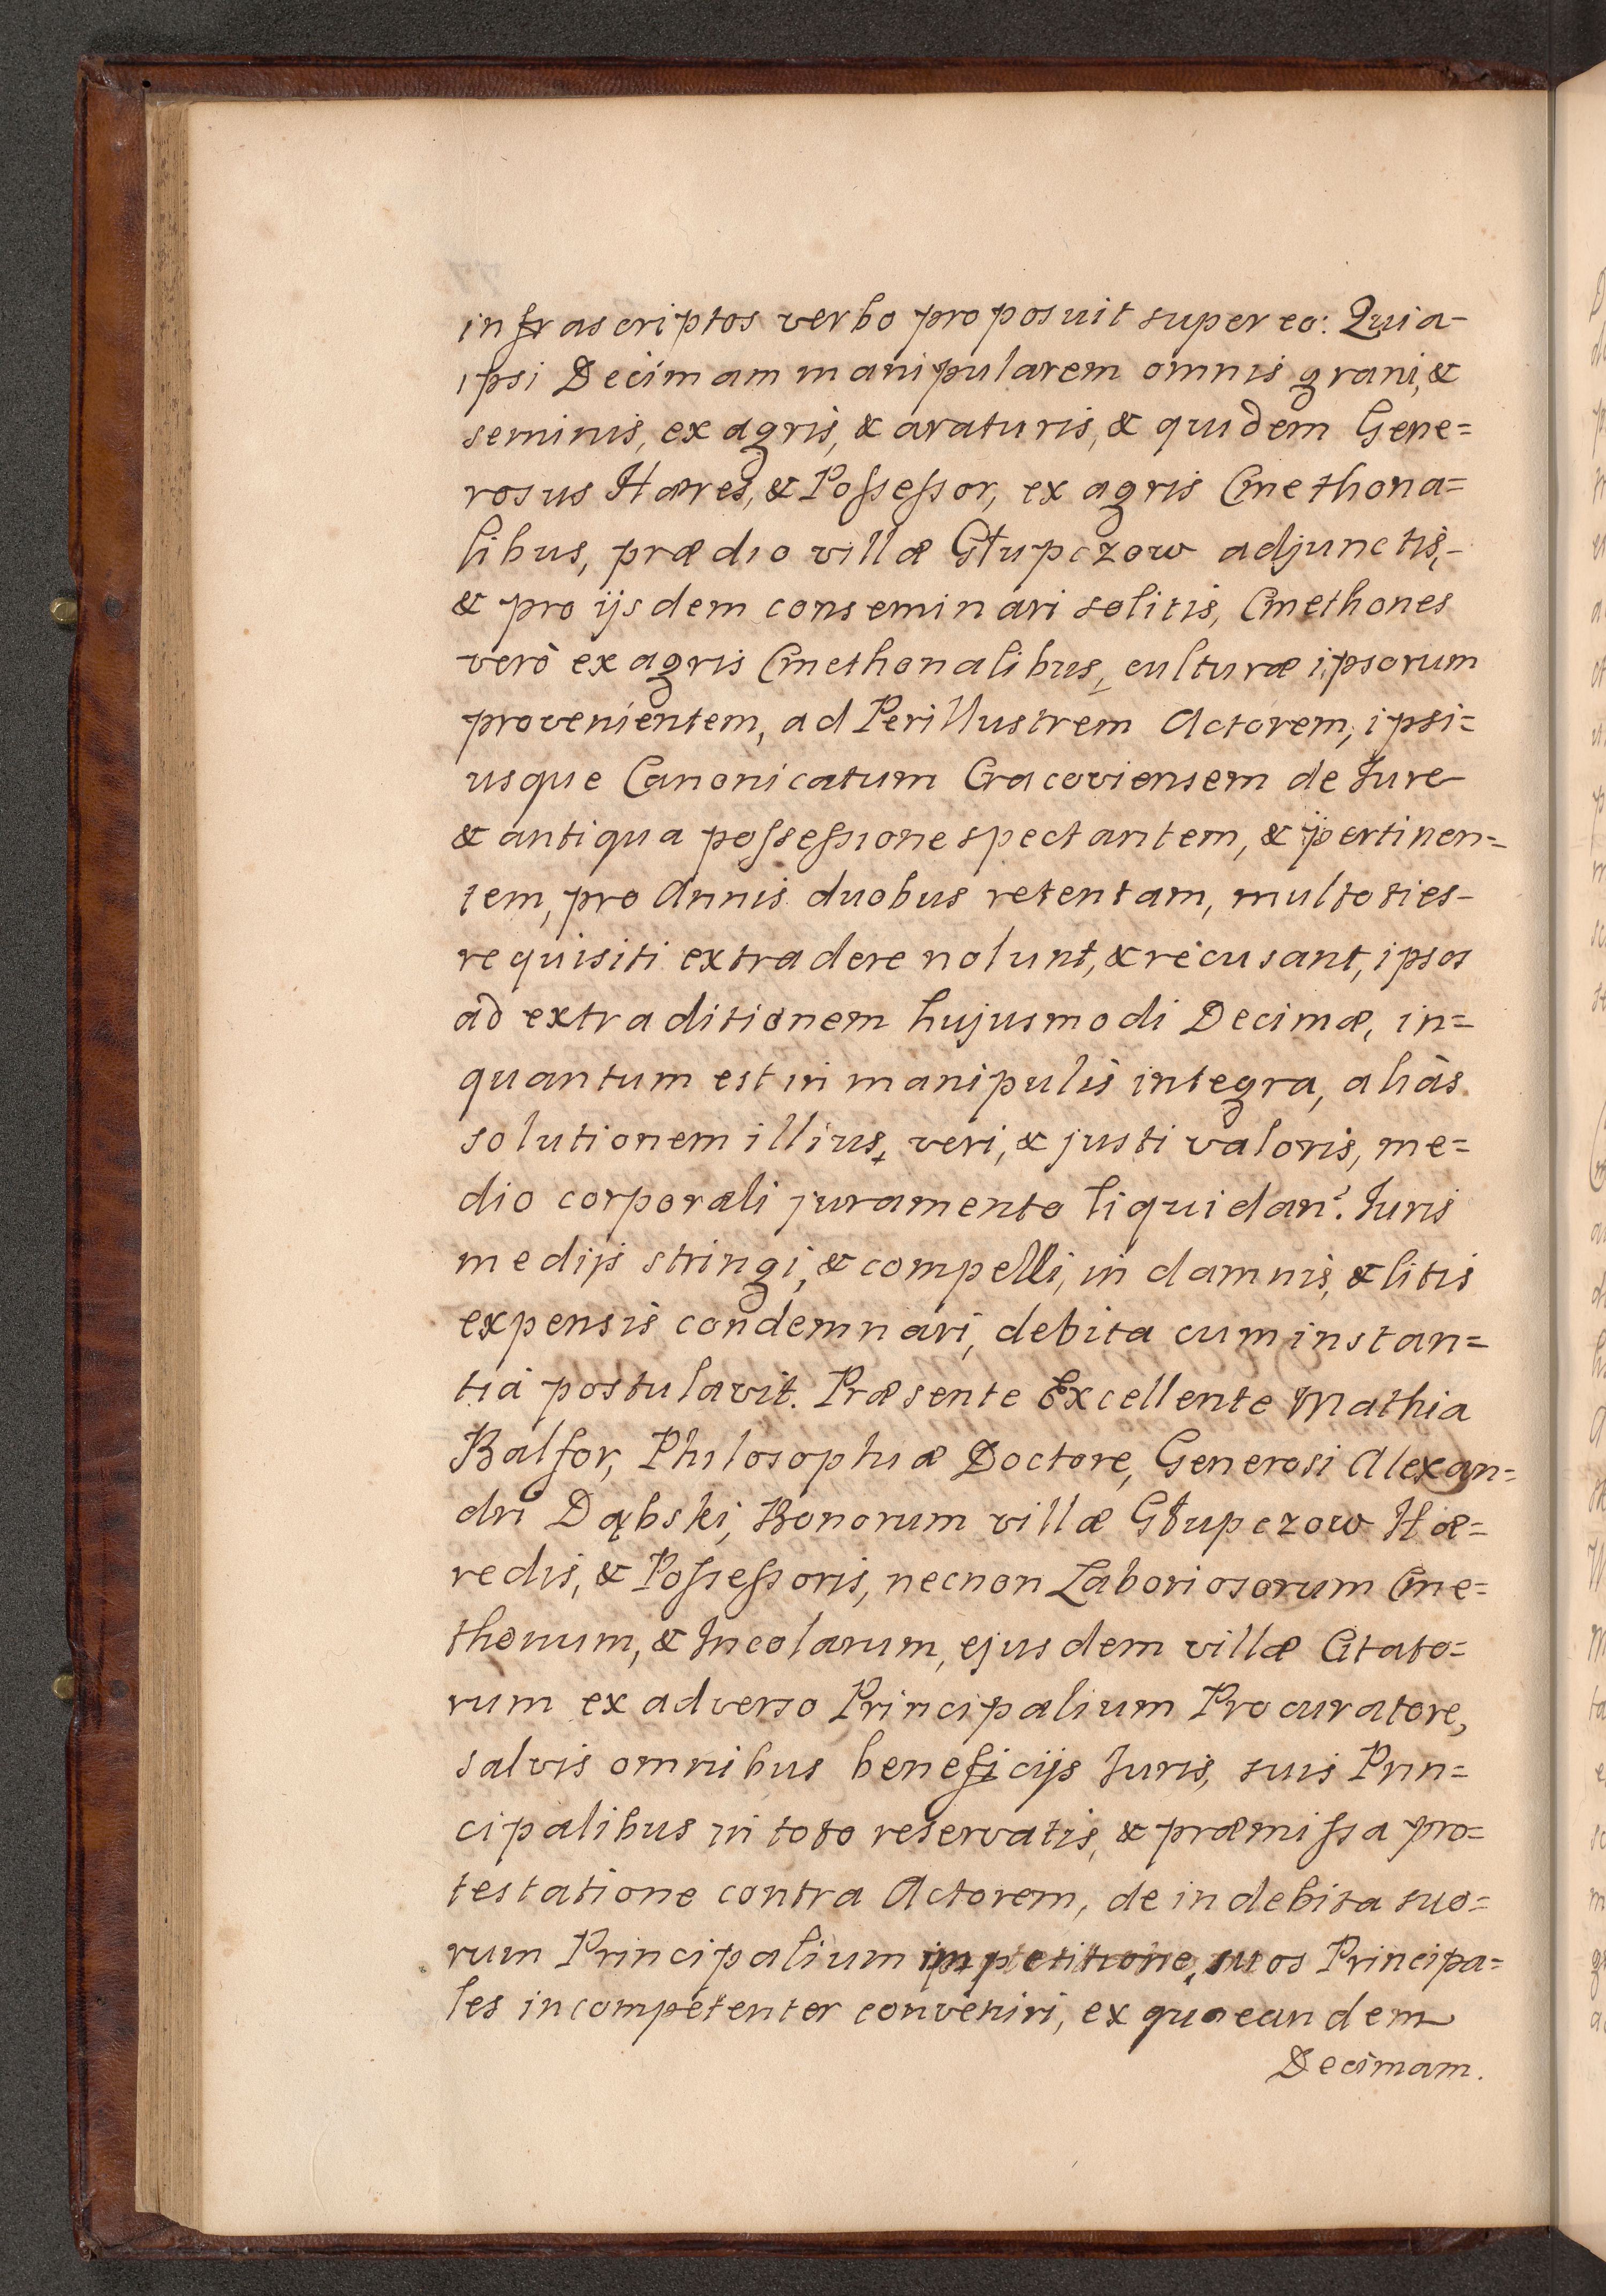 infrascriptos verbo proposuit super eo: Quia-
ipsi Decimam manipularem omnis grani, &
seminis, ex agris, & araturis, & quidem Gene=
rosus Hæres, & Possessor, ex agris Cmethona=
libus, prædio villæ Głupczow adjunctis,-
& pro ijsdem conseminari solitis, Cmethones
verò ex agris Cmethonalibus, culturæ ipsorum
provenientem, ad Perillustrem Actorem, ipsi=
usque Canonicatum Cracoviensem de Jure
& antiqua possessione spectantem, & pertinen=
tem, pro Annis duobus retentam, multoties-
requisiti extradere nolunt, & recusant, ipsos
ad extraditionem hujusmodi Decimæ, in=
quantum est in manipulis integra, aliàs
solutionem illius, veri, & justi valoris, me=
dio corporali juramento liquidan: Juris
medijs stringi, & compelli, in damnis, & litis
expensis condemnari, debita cum instan=
tiá postulavit. Præsente Excellente Mathia
Balfor, Philosophiæ Doctore, Generosi Alexan=
dri Dąbski, Bonorum villæ Głupczow Hæ=
redis, & Possessoris, necnon Laboriosorum Cme=
thonum, & Incolarum, ejusdem villæ Citato=
rum ex adverso Principalium Procuratore,
salvis omnibus beneficijs Juris, suis Prin=
cipalibus in toto reservatis, & præmissa pro=
testatione contra Actorem, de indebita suo=
rum Principalium impetitione, suos Principa=
les incompetenter conveniri, ex quo eandem
Decimam.